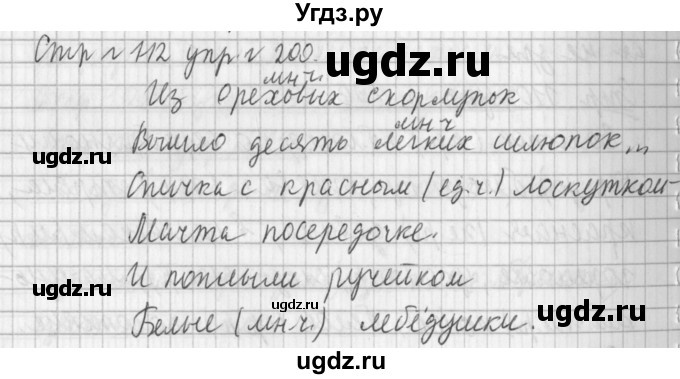 Угдз.ру
Стр г 112 упр г 200.
мн.ч.
Из ореховых скорлупок
мн ч
Вышло десять лёгких шлюпок...
Спичка с красным (ед.ч.) лоскутком-
Мачта посередочке.
И поплыли ручейком
Белые (мн.ч.) лебёдушки.
ugdz.ru
ugdz.ru
ugdz.ru
ugdz.ru
ugdz.ru
ugdz.ru
ugdz.ru
ugdz.ru